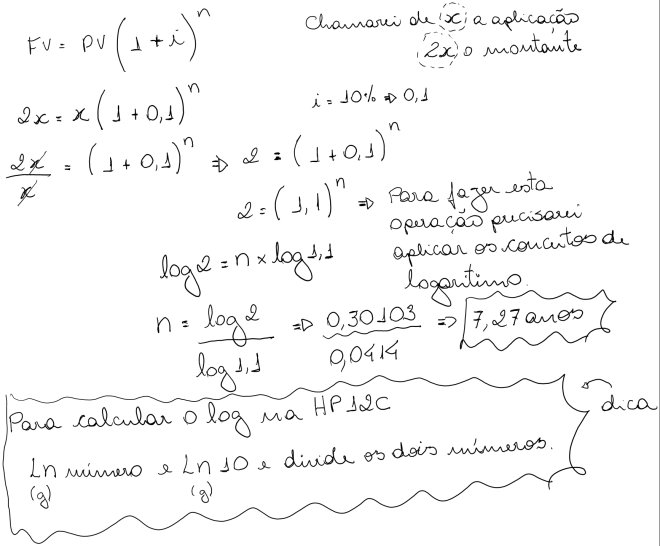 FV = PV (1 + i)^n
Chamarei de x a aplicação
2x o montante
2x = x (1 + 0,1)^n
i = 10% ⇒ 0,1
2x/x = (1 + 0,1)^n ⇒ 2 = (1 + 0,1)^n
2 = (1,1)^n ⇒ Para fazer esta
operação precisarei
aplicar os conceitos de
logaritimo.
log 2 = n x log 1,1
n = log 2 / log 1,1 ⇒ 0,30103 / 0,0414 ⇒ 7,27 anos
dica
Para calcular o log na HP12C
Ln número e Ln 10 e divide os dois números.
(g) (g)